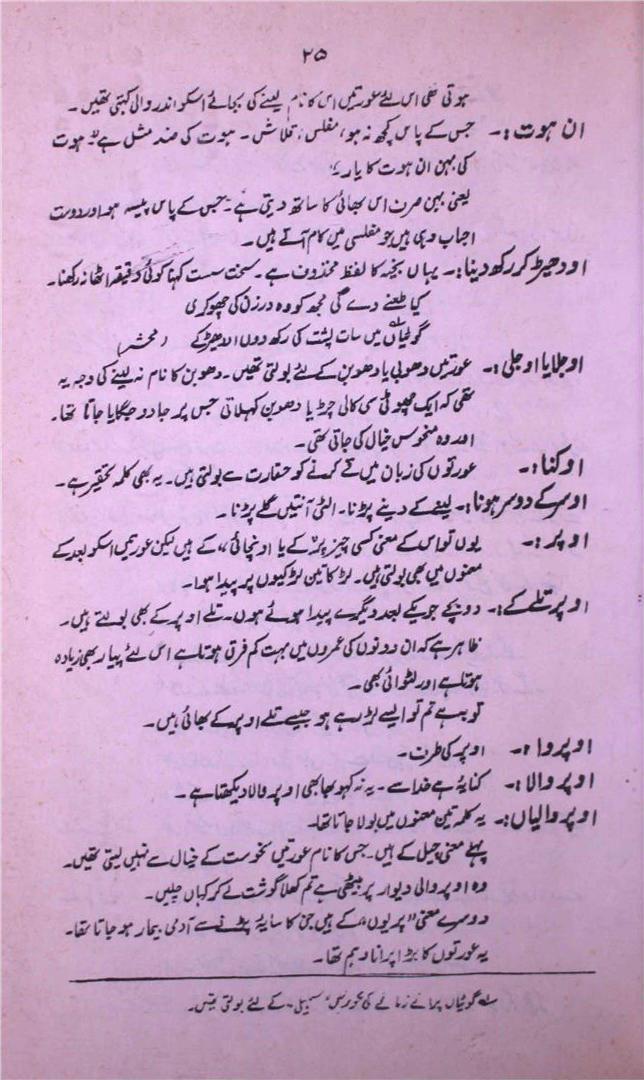 ۲۵
ہوتی تھی اس لئے عورتیں اس کا نام لینے کی بجائے اسکو اندر والی کہتی تھیں۔
ان ہوت :۔ جس کے پاس کچھ نہ ہو، مفلس، قلاش۔ ہوت کی ضد مثل ہے "ہوت
کی بہن ان ہوت کا یار"
یعنی بہن صرف اس بھائی کا ساتھ دیتی ہے۔ جس کے پاس پیسہ ہو اور دوست
احباب وہی ہیں جو مفلسی میں کام آتے ہیں۔
اودھیڑ کر رکھ دینا :۔ یہاں بخیہ کا لفظ محذوف ہے۔ سخت سست کہنا کوئی دقیقہ اٹھا نہ رکھنا۔
کیا طعنے دے گی مجھ کو وہ درزن کی چھوکری
گوئیاں میں سات پشت کی رکھ دوں ادھیڑ کے (محشر)
اوجلا یا اوجلی :۔ عورتیں دھوبی یا دھوبن کے لئے بولتی تھیں۔ دھوبن کا نام نہ لینے کی وجہ یہ
تھی کہ ایک چھوٹی سی کالی چڑیا دھوبن کہلاتی جس پر جادو جگایا جاتا تھا۔
اور وہ منحوس خیال کی جاتی تھی۔
اوکنا :۔ عورتوں کی زبان میں قے کرنے کو حقارت سے بولتی ہیں۔ یہ بھی کلمہ تحقیر ہے۔
اوسر کے دوسر ہونا :۔ لینے کے دینے پڑنا۔ الٹی آنتیں گلے پڑنا۔
اوپر :۔ یوں تو اس کے معنی کسی چیز پر کے یا اونچائی کے ہیں لیکن عورتیں اسکو بعد کے
معنوں میں بھی بولتی ہیں۔ لڑکا تین لڑکیوں پر پیدا ہوا۔
اوپر تلے کے :۔ دو بچے جو یکے بعد دیگرے پیدا ہوئے ہوں۔ تلے اوپر کے بھی بولتے ہیں۔
ظاہر ہے کہ ان دونوں کی عمروں میں بہت کم فرق ہوتا ہے اس لئے پیار بھی زیادہ
ہوتا ہے اور لڑائی بھی۔
توبہ ہے تم تو ایسے لڑ رہے ہو جیسے تلے اوپر کے بھائی ہیں۔
اوپر وا :۔ اوپر کی طرف۔
اوپر والا :۔ کنایہً ہے خدا سے۔ یہ نہ کہو بھابھی اوپر والا دیکھتا ہے۔
اوپر والیاں :۔ یہ کلمہ تین معنوں میں بولا جاتا تھا۔
پہلے معنی چیل کے ہیں۔ جس کا نام عورتیں نحوست کے خیال سے نہیں لیتی تھیں۔
وہ اوپر والی دیوار پر بیٹھی ہے تم کھلا گوشت لے کر کہاں چلیں۔
دوسرے معنی "پریوں" کے ہیں جن کا سایہ پڑنے سے آدمی بیمار ہو جاتا تھا۔
یہ عورتوں کا بڑا پرانا وہم تھا۔
سلہ گوئیاں پرانے زمانے کی عورتیں "سہیلی" کے لئے بولتی تھیں۔